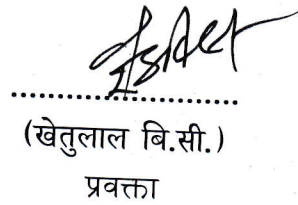 ........................................
(खेतुलाल बि.सी.)
प्रवक्ता